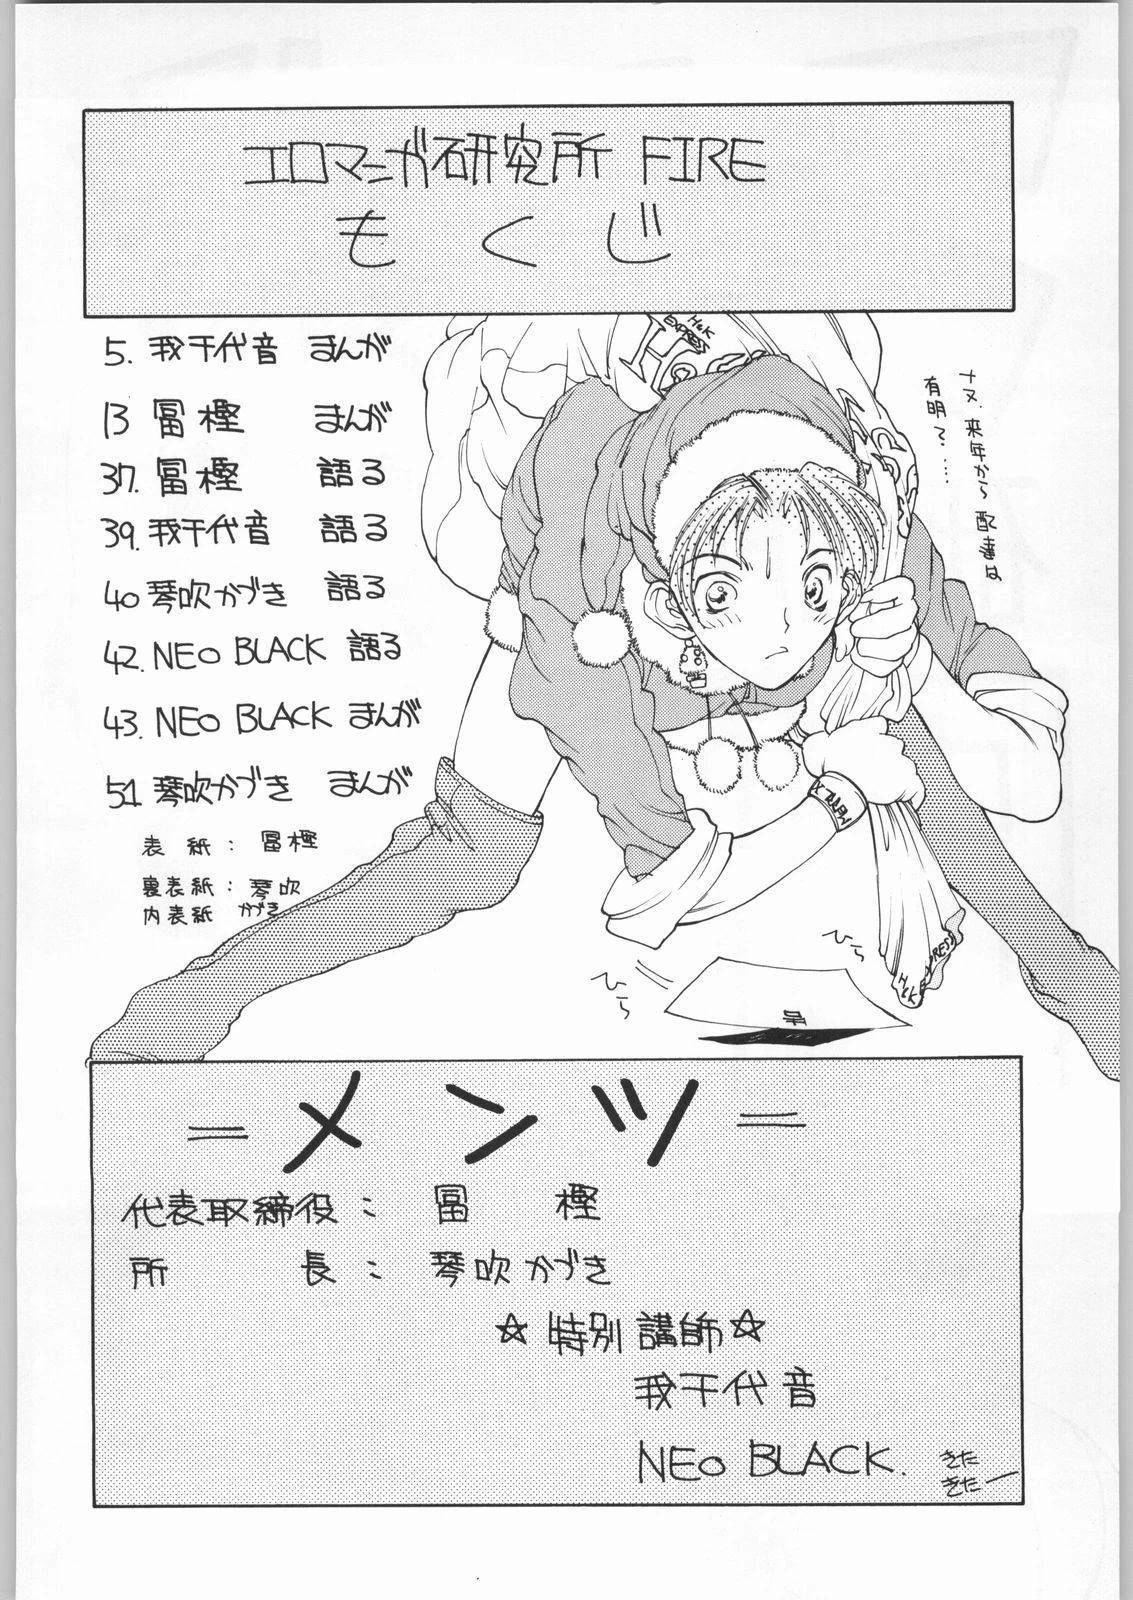 エロマンガ研究所 FIRE
もくじ
5. 我千代音 まんが
13 冨樫 まんが
37. 冨樫 語る
39. 我千代音 語る
40 琴吹かづき 語る
42. NEO BLACK 語る
43. NEO BLACK まんが
51 琴吹かづき まんが
表紙: 冨樫
裏表紙: 琴吹
内表紙 かづき
H&K
EXPRESS
ナヌ.来年から配達は
有明?……
MERRY X
ひら
ひら
H&K EXPRESS
=メンツ=
代表取締役: 冨樫
所長: 琴吹かづき
☆特別講師☆
我千代音
NEO BLACK.
きた
きたー